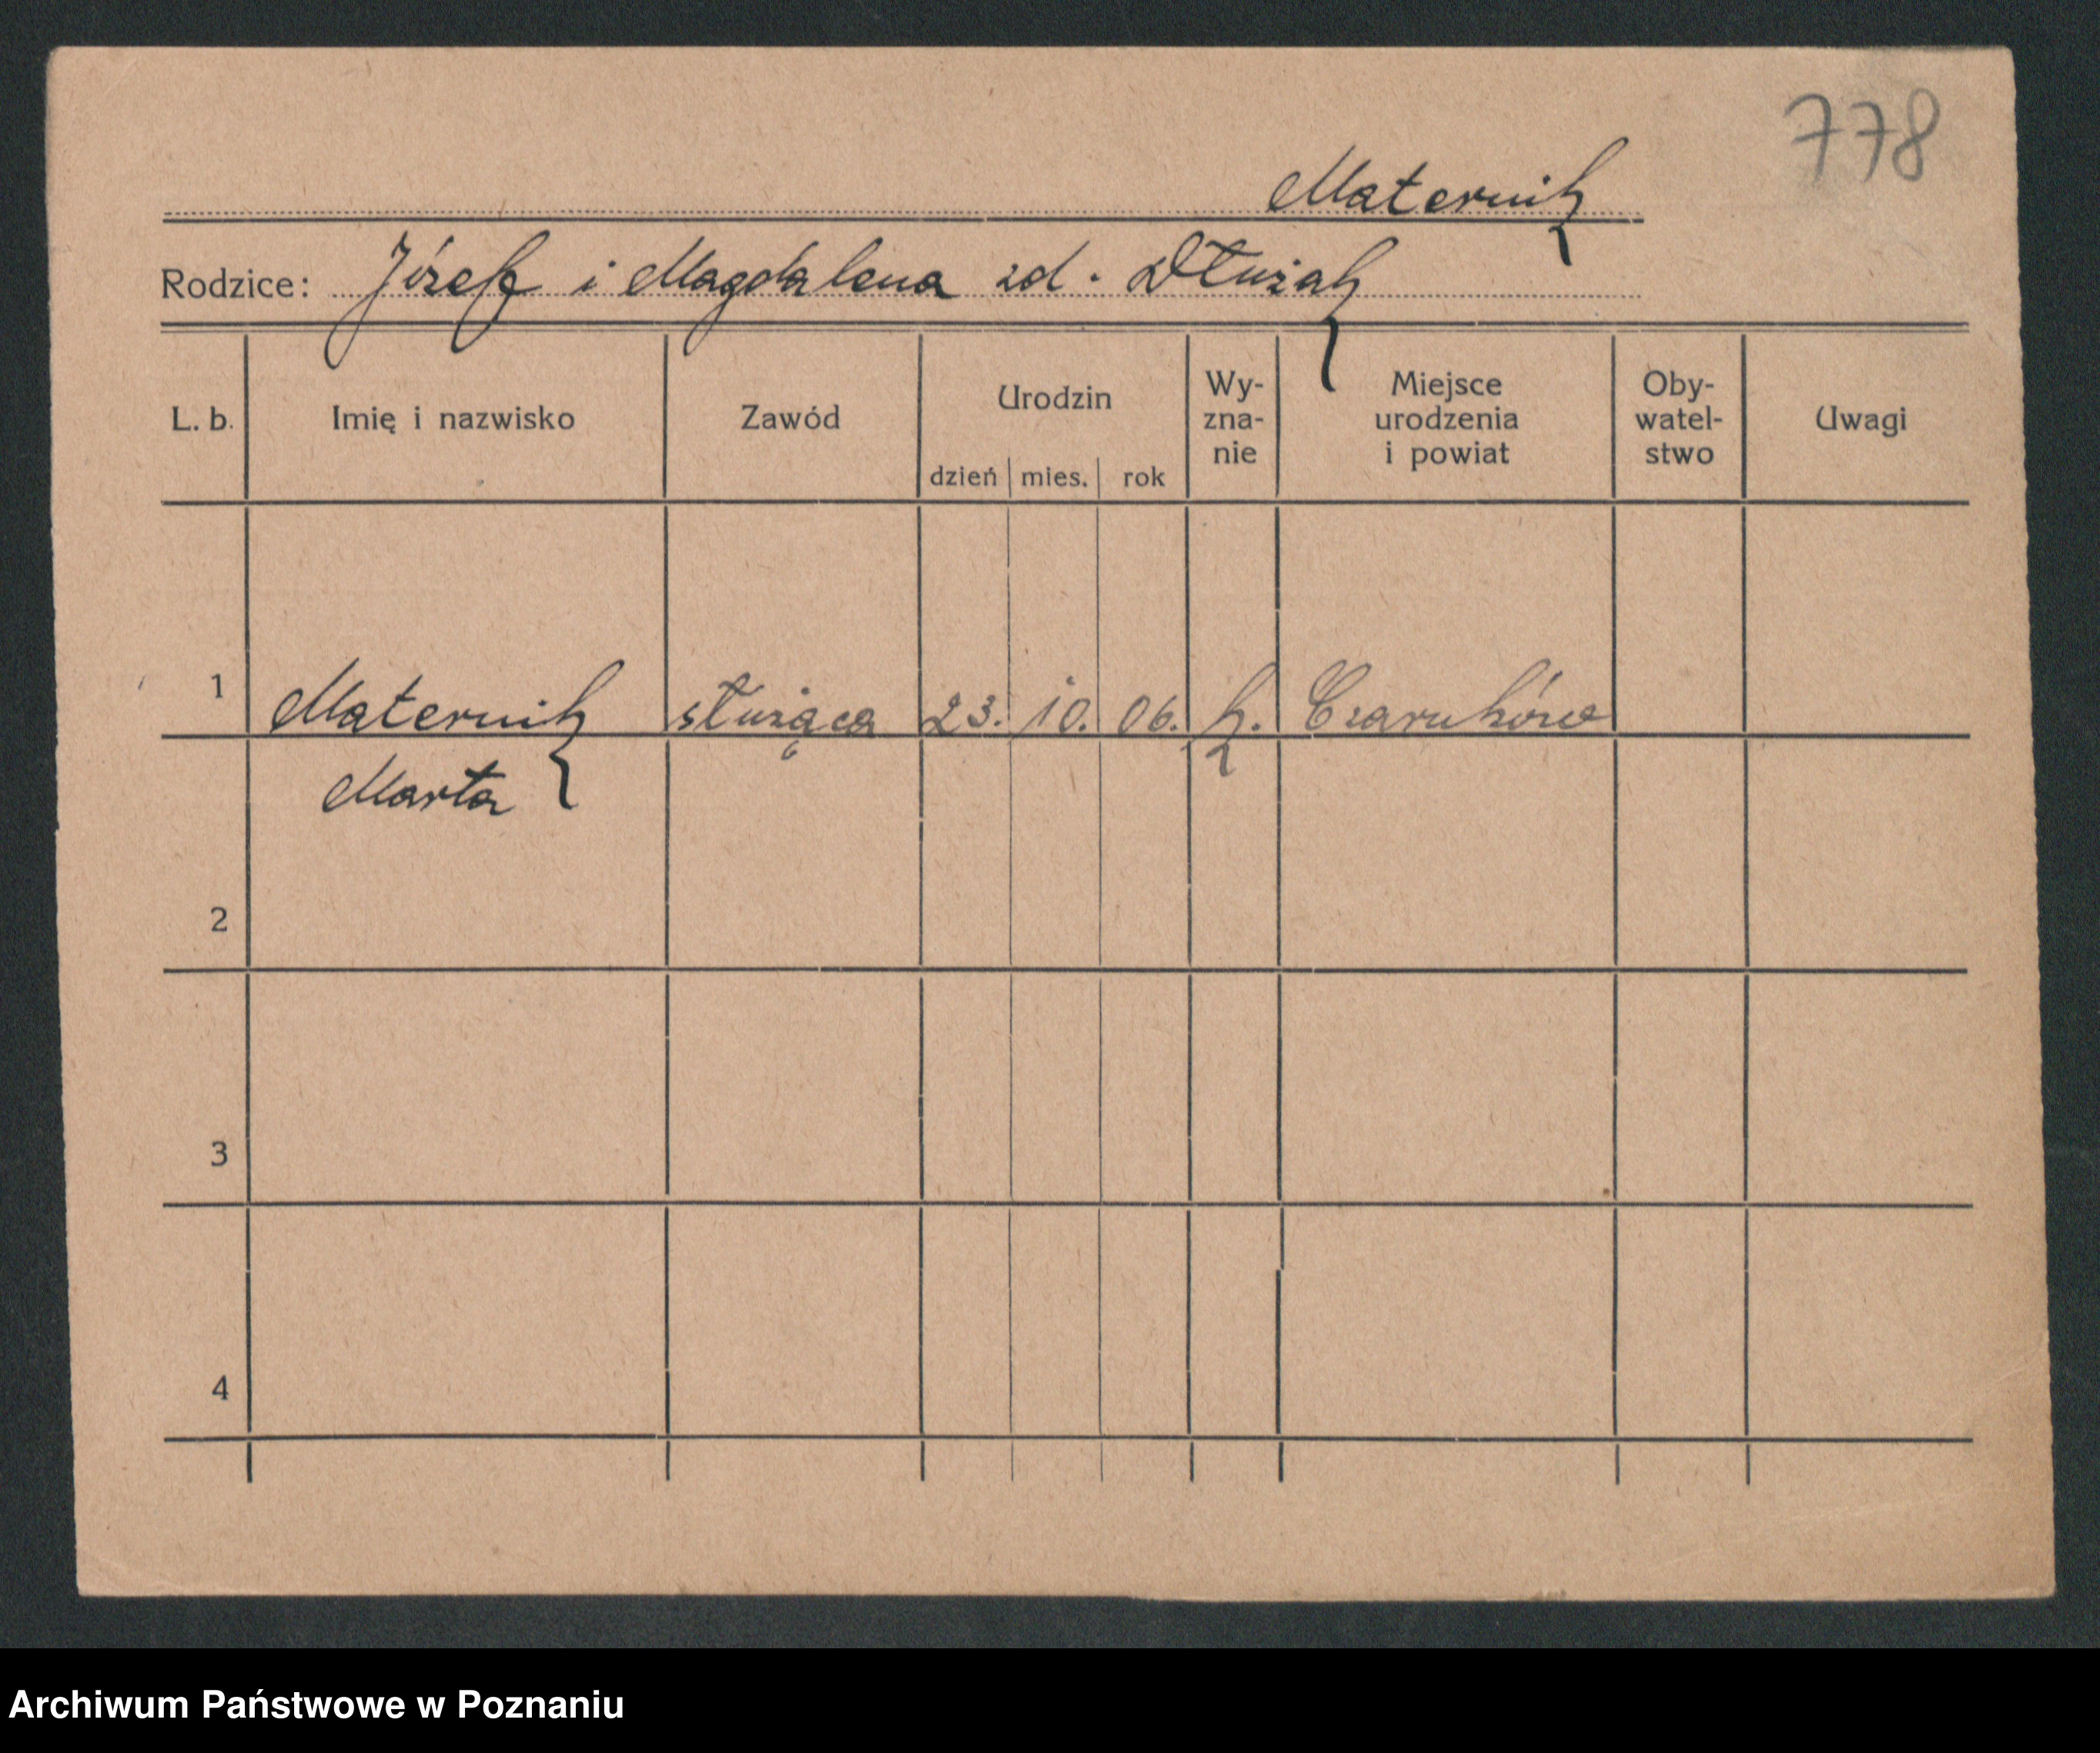 778
Maternik
Rodzice: Józef i Magdalena zd. Dłużak
L. b. Imię i nazwisko Zawód Urodzin dzień mies. rok Wy-zna-nie Miejsce urodzenia i powiat Oby-watel-stwo Uwagi
1 Maternik służąca 23. 10. 06. k. Czarnków
Marta
2
3
4
Archiwum Państwowe w Poznaniu